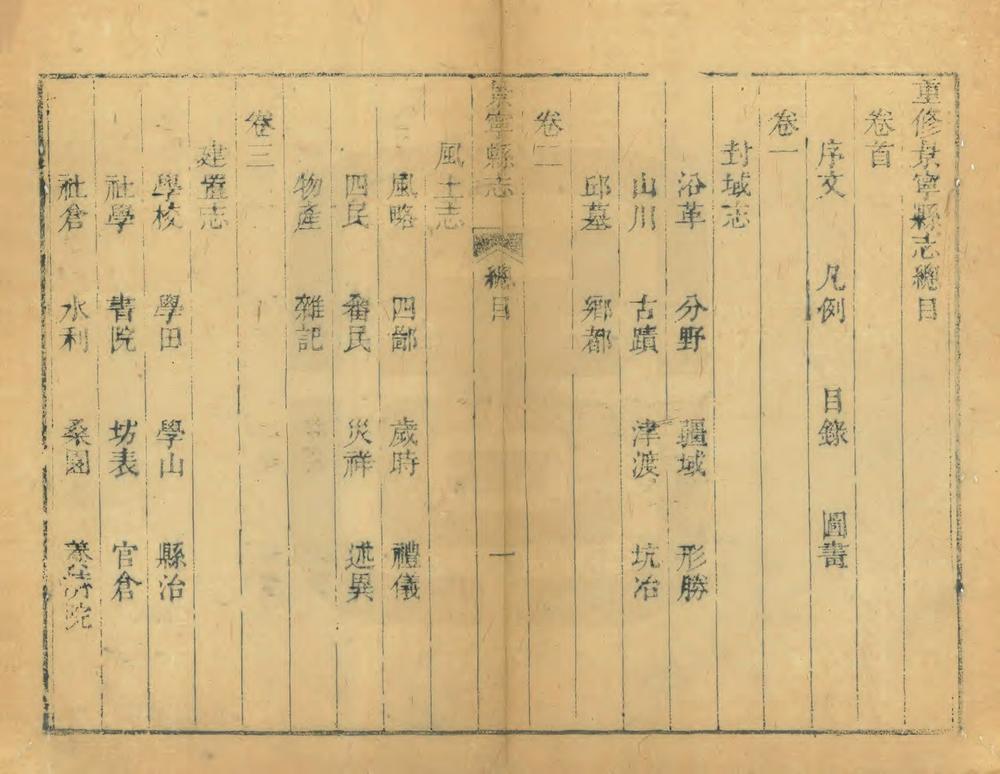 重修景寧縣志總目
卷首
序文 凡例 目錄 圖畵
卷一
封域志
沿革 分野 疆域 形勝
山川 古蹟 津渡 坑冶
邱墓 鄉都
卷二
景寧縣志 總目 一
風土志
風略 四鄙 歲時 禮儀
四民 畬民 災祥 述異
物產 雜記
卷三
建置志
學校 學田 學山 縣治
社學 書院 坊表 官倉
社倉 水利 桑園 養濟院